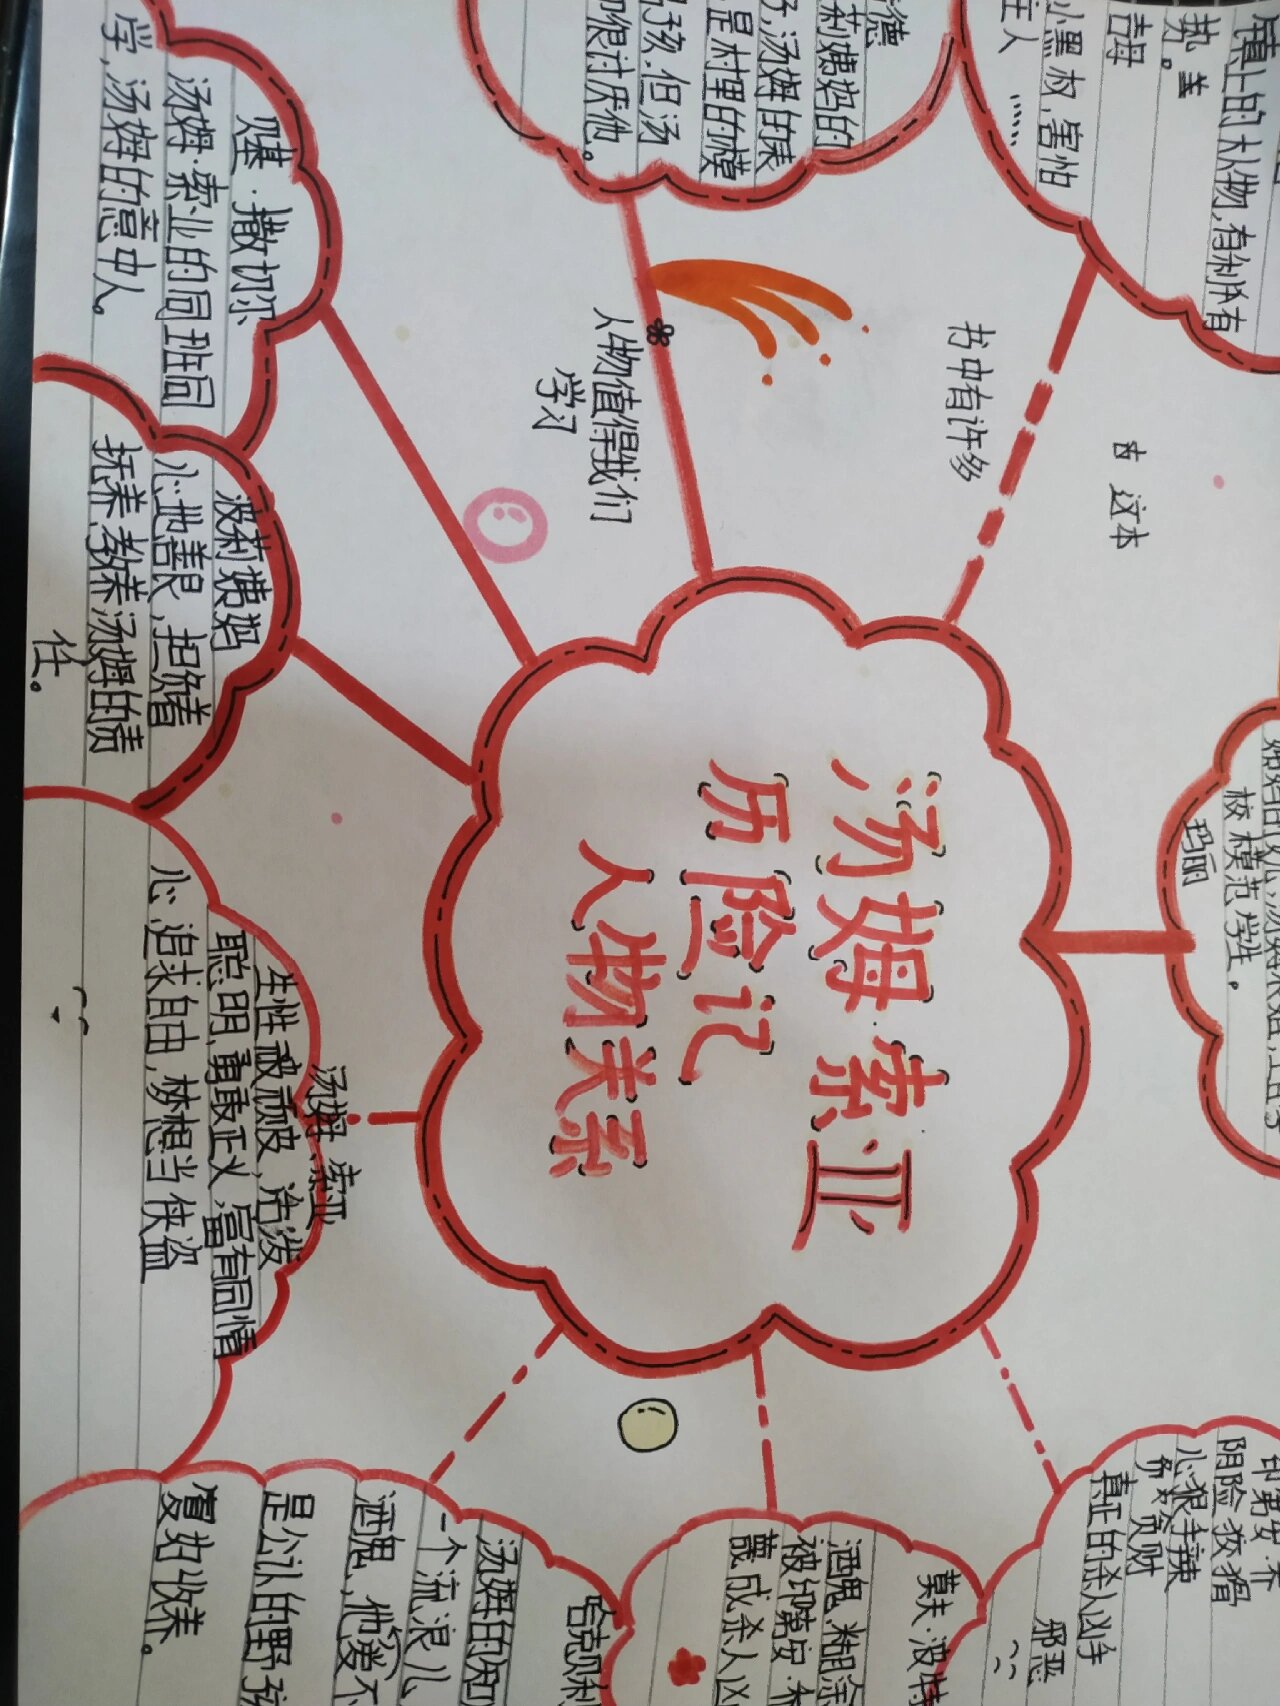 汤姆·索亚
历险记
人物关系
镇上的大人物,有钱有
势。
小黑奴,害怕
主人
……
莉姨妈的
子,汤姆的表
是村里的模
孩.但汤
很讨厌他。
赃·撒切尔
汤姆·索亚的同班同
学,汤姆的意中人。
波莉姨妈
心地善良,担负着
抚养,教养汤姆的责
任。
汤姆·索亚
生性被顽皮,活泼
聪明,勇敢正义,富有同情
心,追求自由,梦想当侠盗
汤姆的知
一个流浪儿
酒鬼,他爱不
是公认的野孩
寡妇收养。
莫夫·波特
酒鬼.糊涂
被印第安·
成杀人凶
阴险狡猾
心狠手辣
贪财
真正的杀人凶手
邪恶
玛丽
校模范学生。
书中有许多
这本
人物值得我们
学习